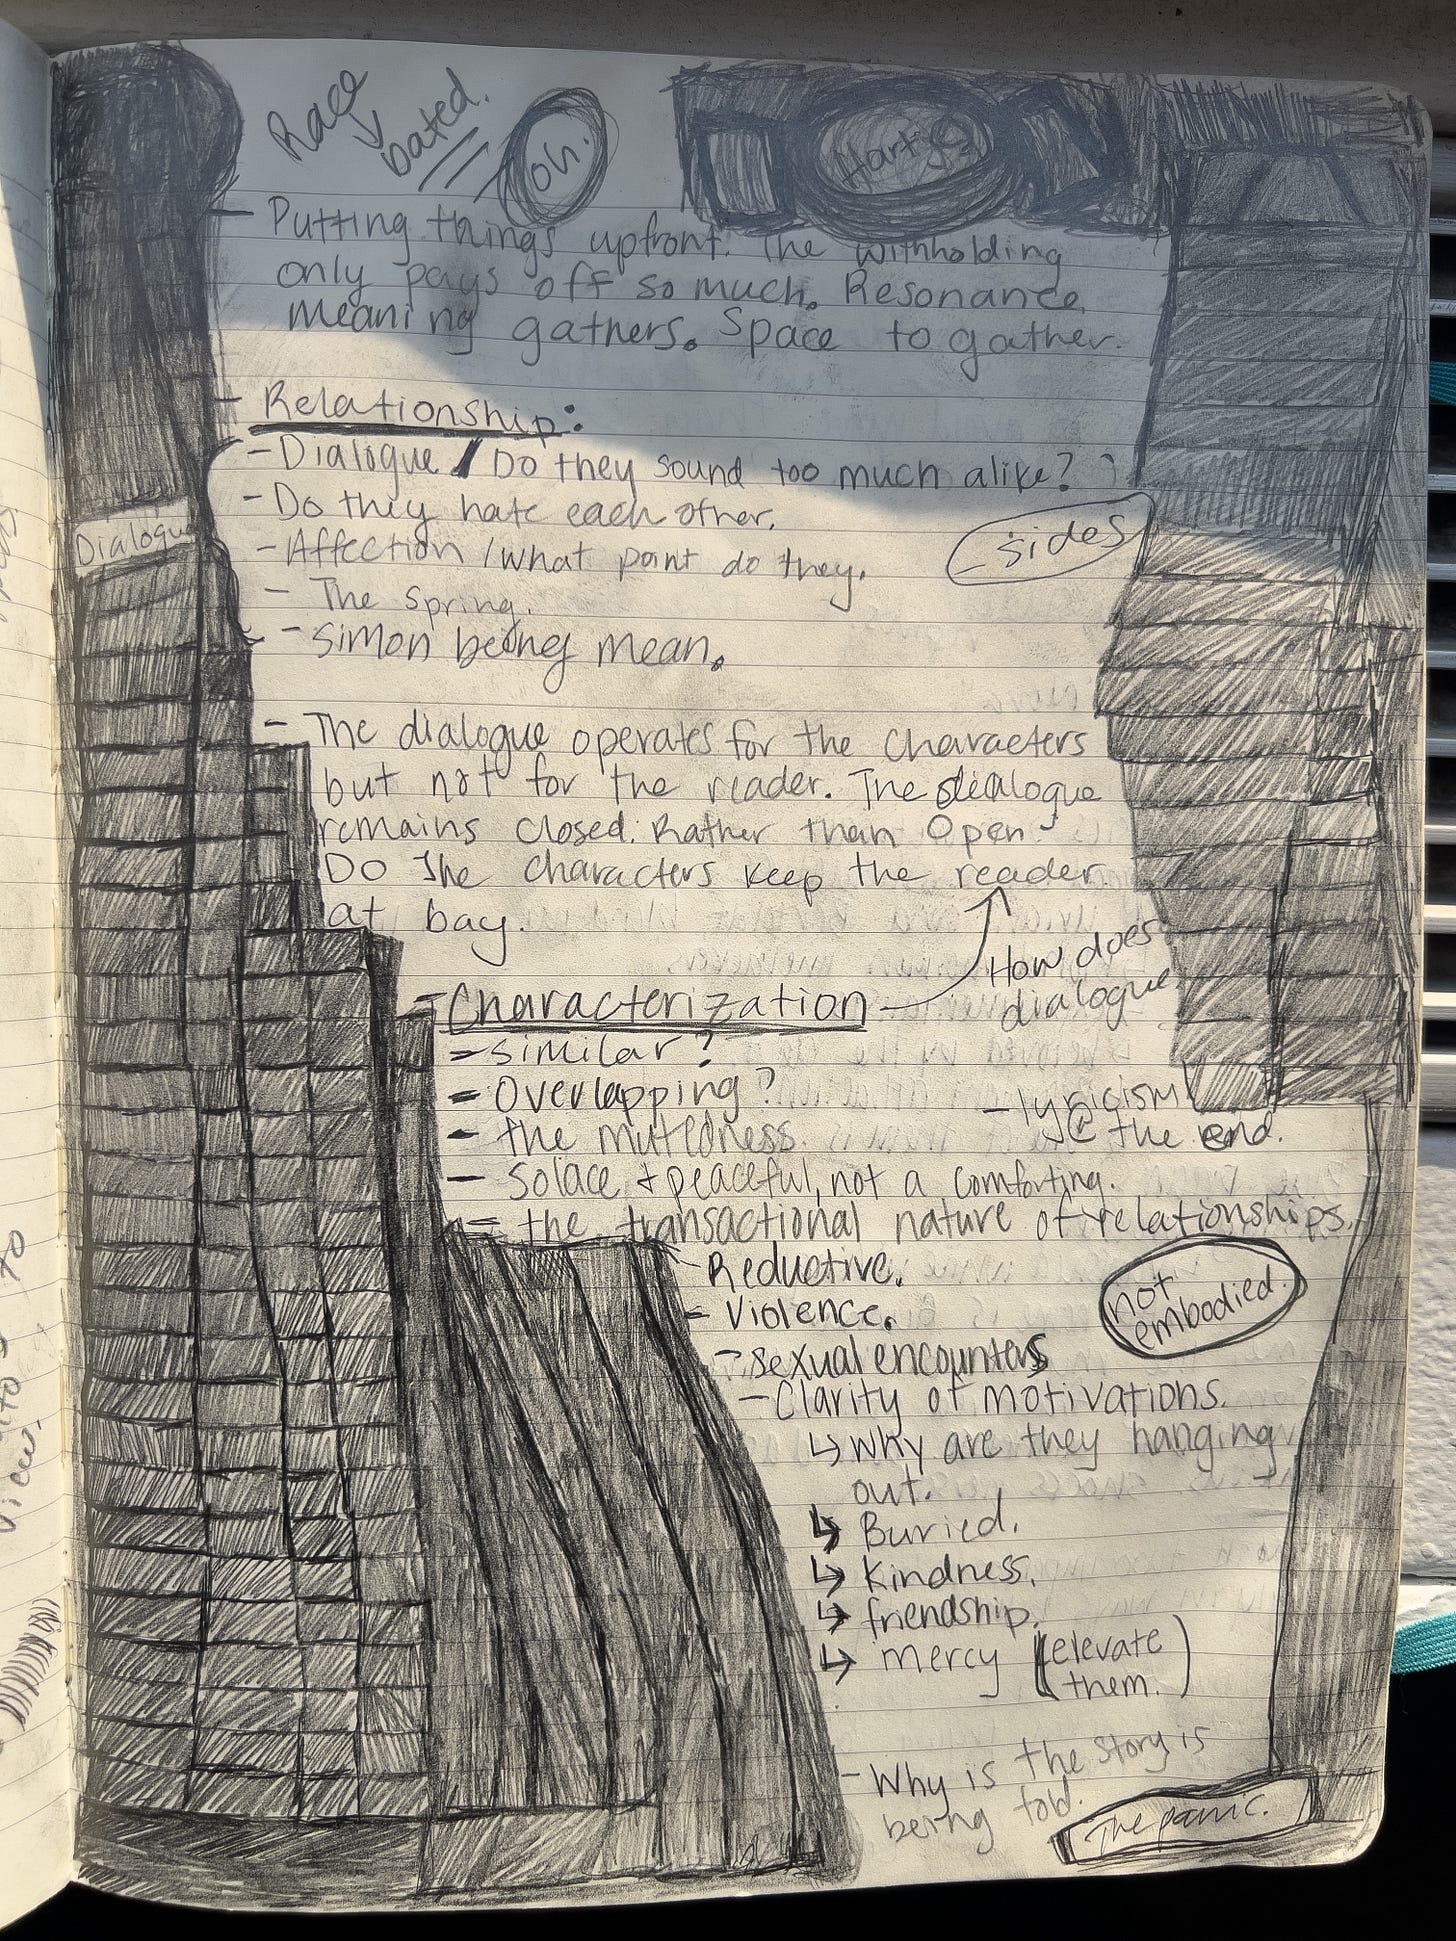 Race
bated.
oh.
- Putting things upfront. The withholding
only pays off so much. Resonance,
meaning gathers. Space to gather.
- Relationship:
- Dialogue / Do they sound too much alike?
- Do they hate each other.
- sides
- Affection / what point do they.
- The spring.
- Simon being mean.
Dialogue
- The dialogue operates for the characters
but not for the reader. The dialogue
remains closed. Rather than open -
Do the characters keep the reader
at bay.
How does
dialogue
- Characterization
- similar?
- Overlapping?
- the mutedness.
- lyricism
@ the end.
- solace + peaceful, not a comforting.
- the transactional nature of relationships.
- Reductive.
- Violence.
not
embodied.
- sexual encounters
- Clarity of motivations.
↳ why are they hanging
out.
↳ Buried.
↳ kindness.
↳ friendship.
↳ mercy (elevate
them.)
- Why is the story is
being told.
The panic.